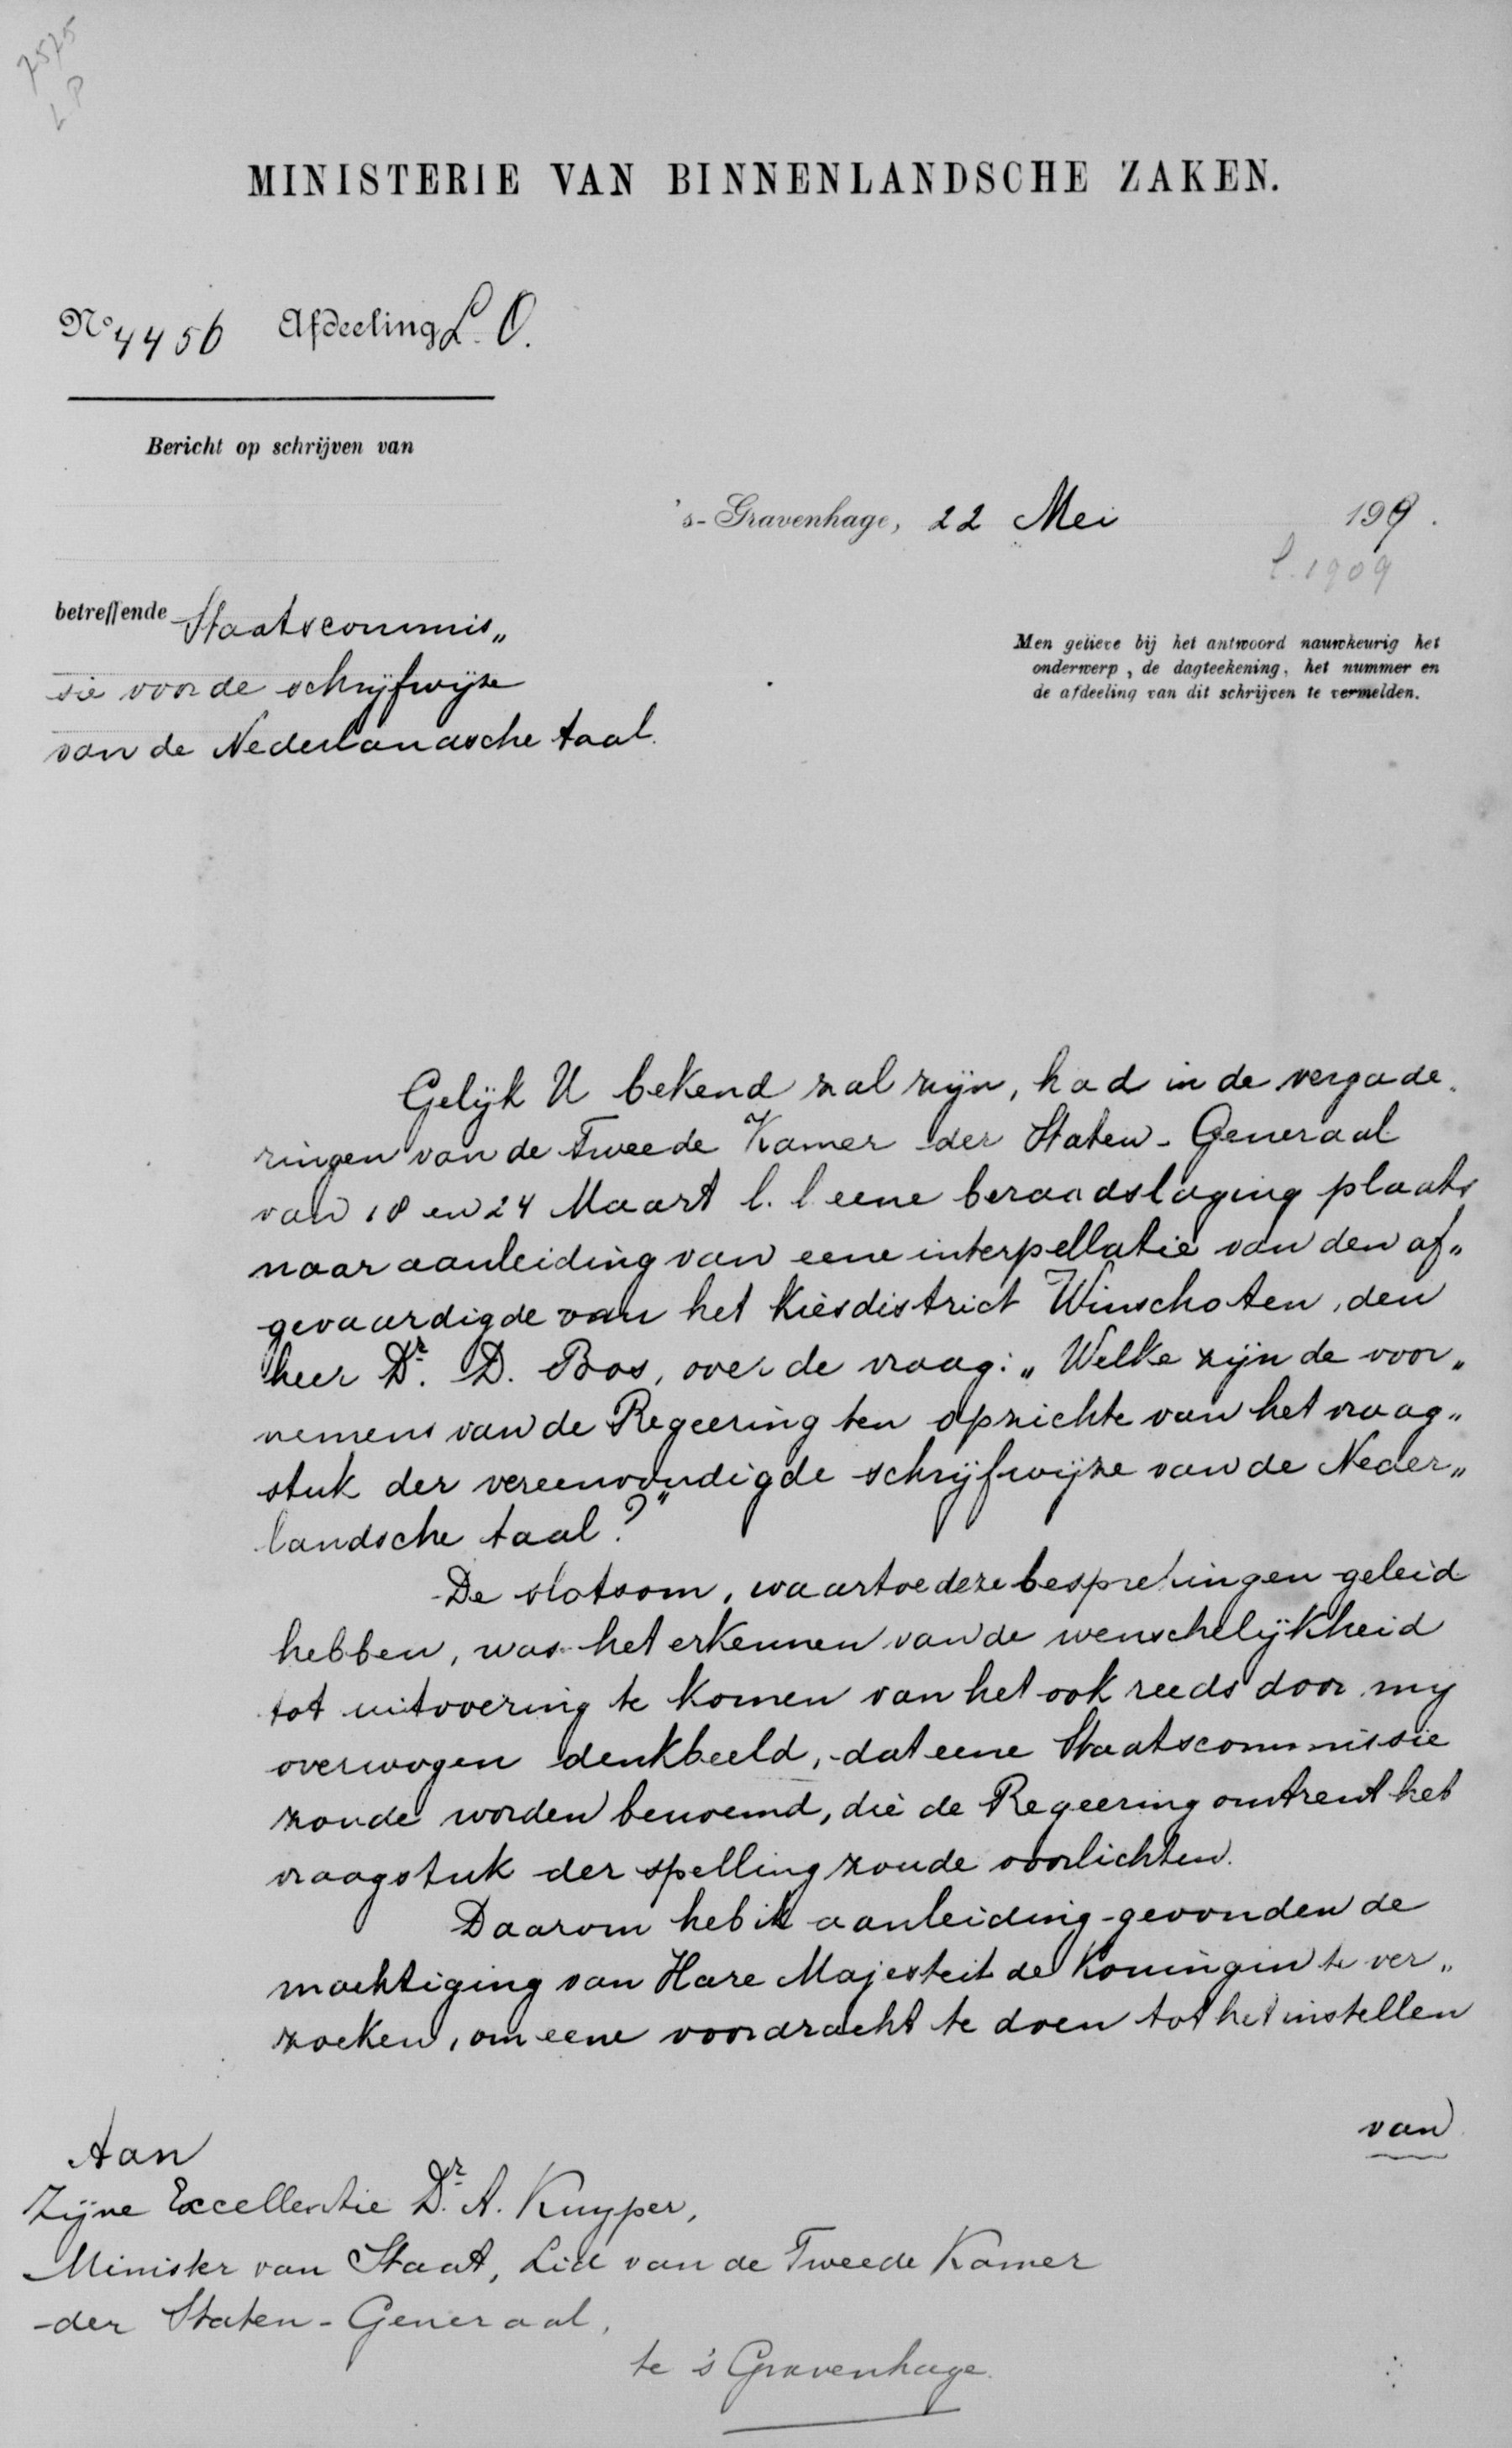 7575
L.P
MINISTERIE VAN BINNENLANDSCHE ZAKEN.
No 4456 Afdeeling L. O.
Bericht op schrijven van
's-Gravenhage, 22 Mei 199.
1909
betreffende Staatscommis„
sie voor de schrijfwijze
van de Nederlandsche taal.
Men gelieve bij het antwoord nauwkeurig het
onderwerp, de dagteekening, het nummer en
de afdeeling van dit schrijven te vermelden.
Gelijk U bekend zal zijn, had in de vergade„
ringen van de Tweede Kamer der Staten-Generaal
van 18 en 24 Maart l.l. eene beraadslaging plaats
naar aanleiding van eene interpellatie van den af„
gevaardigde van het Kiesdistrict Winschoten, den
heer Dr. D. Bos, over de vraag: „Welke zijn de voor„
nemens van de Regeering ten opzichte van het vraag„
stuk der vereenvoudigde schrijfwijze van de Neder„
landsche taal?"
De slotsom, waartoe deze besprekingen geleid
hebben, was het erkennen van de wenschelijkheid
tot uitvoering te komen van het ook reeds door mij
overwogen denkbeeld, dat eene Staatscommissie
zoude worden benoemd, die de Regeering omtrent het
vraagstuk der spelling zoude voorlichten.
Daarom heb ik aanleiding gevonden de
machtiging van Hare Majesteit de Koningin te ver„
zoeken, om eene voordracht te doen tot het instellen
van
Aan
Zijne Excellentie Dr. A. Kuyper,
Minister van Staat, Lid van de Tweede Kamer
der Staten-Generaal,
te 's Gravenhage.